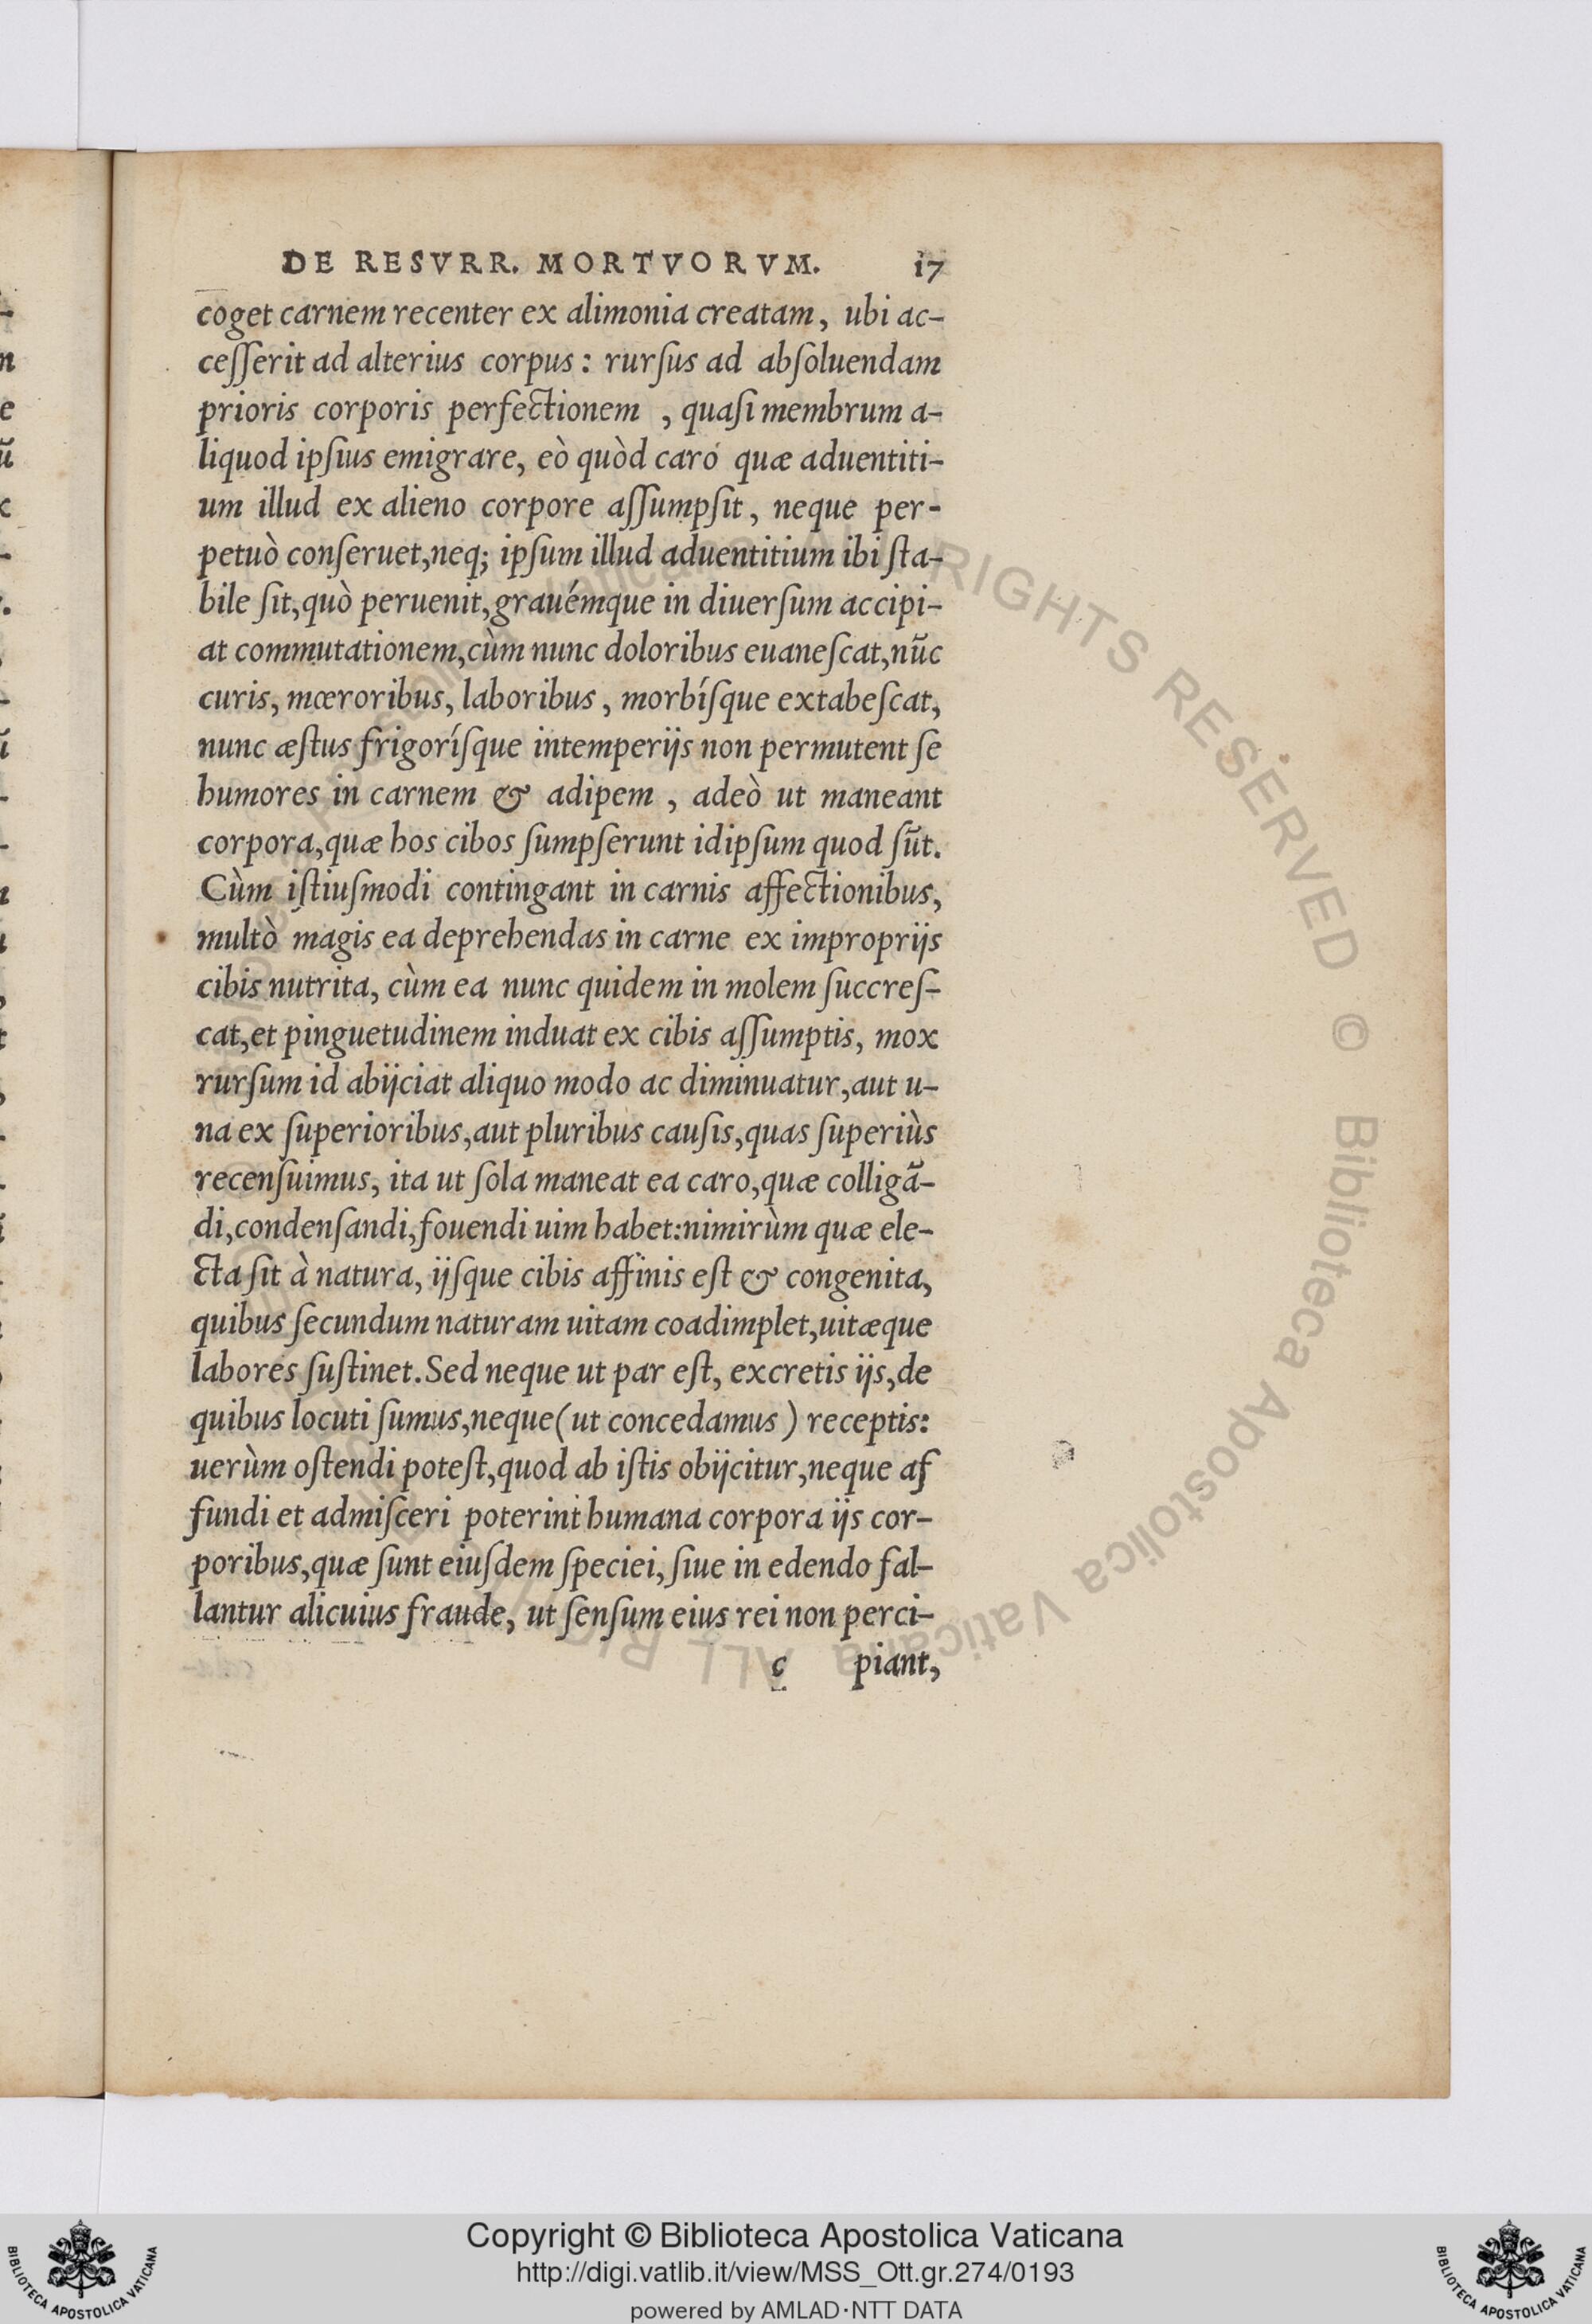 DE RESVRR. MORTVORVM. 17
coget carnem recenter ex alimonia creatam, ubi ac-
ceſſerit ad alterius corpus: rurſus ad abſoluendam
prioris corporis perfectionem , quaſi membrum a-
liquod ipſius emigrare, eò quòd caró quæ aduentiti-
um illud ex alieno corpore aſſumpſit, neque per-
petuò conſeruet,neq; ipſum illud aduentitium ibi ſta-
bile ſit,quò peruenit,grauémque in diuerſum accipi-
at commutationem,cùm nunc doloribus euaneſcat,nūc
curis, mœroribus, laboribus , morbíſque extabeſcat,
nunc æſtus frigoríſque intemperijs non permutent ſe
humores in carnem & adipem , adeò ut maneant
corpora,quæ hos cibos ſumpſerunt idipſum quod ſūt.
Cùm iſtiuſmodi contingant in carnis affectionibus,
multò magis ea deprehendas in carne ex improprijs
cibis nutrita, cùm ea nunc quidem in molem ſuccreſ-
cat,et pinguetudinem induat ex cibis aſſumptis, mox
rurſum id abijciat aliquo modo ac diminuatur,aut u-
na ex ſuperioribus,aut pluribus cauſis,quas ſuperiùs
recenſuimus, ita ut ſola maneat ea caro,quæ colligā-
di,condenſandi,fouendi uim habet:nimirùm quæ ele-
cta ſit à natura, ijſque cibis affinis eſt & congenita,
quibus ſecundum naturam uitam coadimplet,uitæque
labores ſuſtinet.Sed neque ut par eſt, excretis ijs,de
quibus locuti ſumus,neque(ut concedamus) receptis:
uerùm oſtendi poteſt,quod ab iſtis obijcitur,neque af
fundi et admiſceri poterint humana corpora ijs cor-
poribus,quæ ſunt eiuſdem ſpeciei, ſiue in edendo fal-
lantur alicuius fraude, ut ſenſum eius rei non perci-
c piant,
Copyright © Biblioteca Apostolica Vaticana
http://digi.vatlib.it/view/MSS_Ott.gr.274/0193
powered by AMLAD·NTT DATA
BIBLIOTECA APOSTOLICA VATICANA
BIBLIOTECA APOSTOLICA VATICANA
ALL RIGHTS RESERVED © Biblioteca Apostolica Vaticana